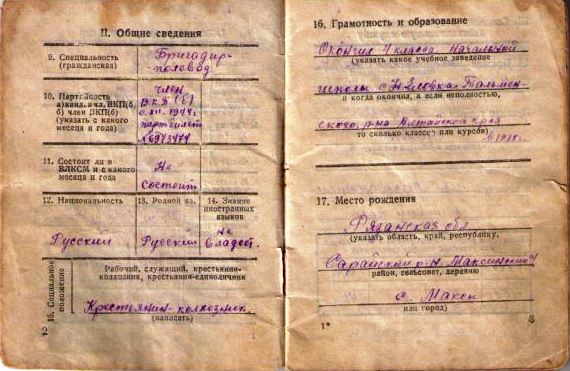 II. Общие сведения
9. Специальность
(гражданская)
Бригадир-
полевод
10. Партийность
а) канд. в чл. ВКП(б)
б) член ВКП(б)
(указать с какого
месяца и года)
член
В.К.П.(б)
1944
партбилет
№6973474
11. Состоит ли в
ВЛКСМ и с какого
месяца и года
Не
состоит
12. Национальность
13. Родной яз.
14. Знание
иностранных
языков
Русский
Русский
не
владеет.
15. Социальное
положение
Рабочий, служащий, крестьянин-
колхозник, крестьянин-единоличник
Крестьянин-колхозник.
(написать)
2
16. Грамотность и образование
Окончил 4 класса начальной
(указать какое учебное заведение
школы с. Н Еловка Тальмен-
и когда окончил, а если неполностью,
ского р-на Алтайского края
то сколько классов или курсов)
17. Место рождения
Рязанская обл
(указать область, край, республику,
Сарайский р-н. Максинский
район, сельсовет, деревню
с. Макси
или город)
1*
3